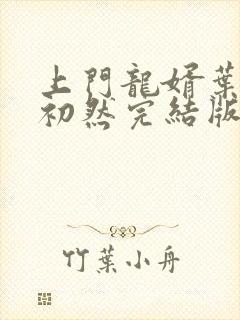 上門龍婿葉
初然完結版
竹葉小舟